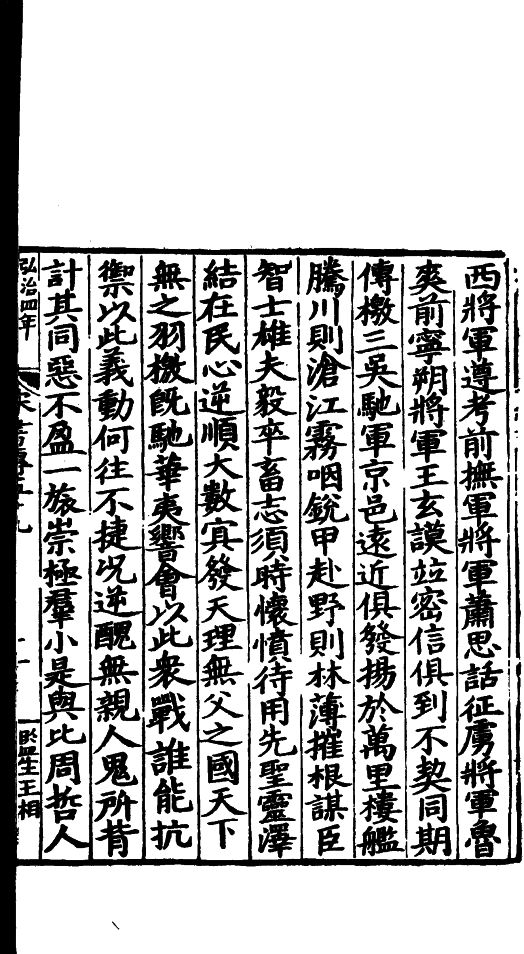 西將軍遵考前撫軍將軍蕭思話征虜將軍魯
爽前寧朔將軍王玄謨竝密信俱到不契同期
傳檄三吳馳軍京邑遠近俱發揚於萬里樓艦
騰川則滄江霧咽銳甲赴野則林薄摧根謀臣
智士雄夫毅卒畜志須時懷憤待用先聖靈澤
結在民心逆順大數冥發天理無父之國天下
無之羽檄既馳華夷響會以此衆戰誰能抗
禦以此義動何往不捷況逆醜無親人鬼所背
計其同惡不盈一旅崇極羣小是與比周哲人
弘治四年
監生王相